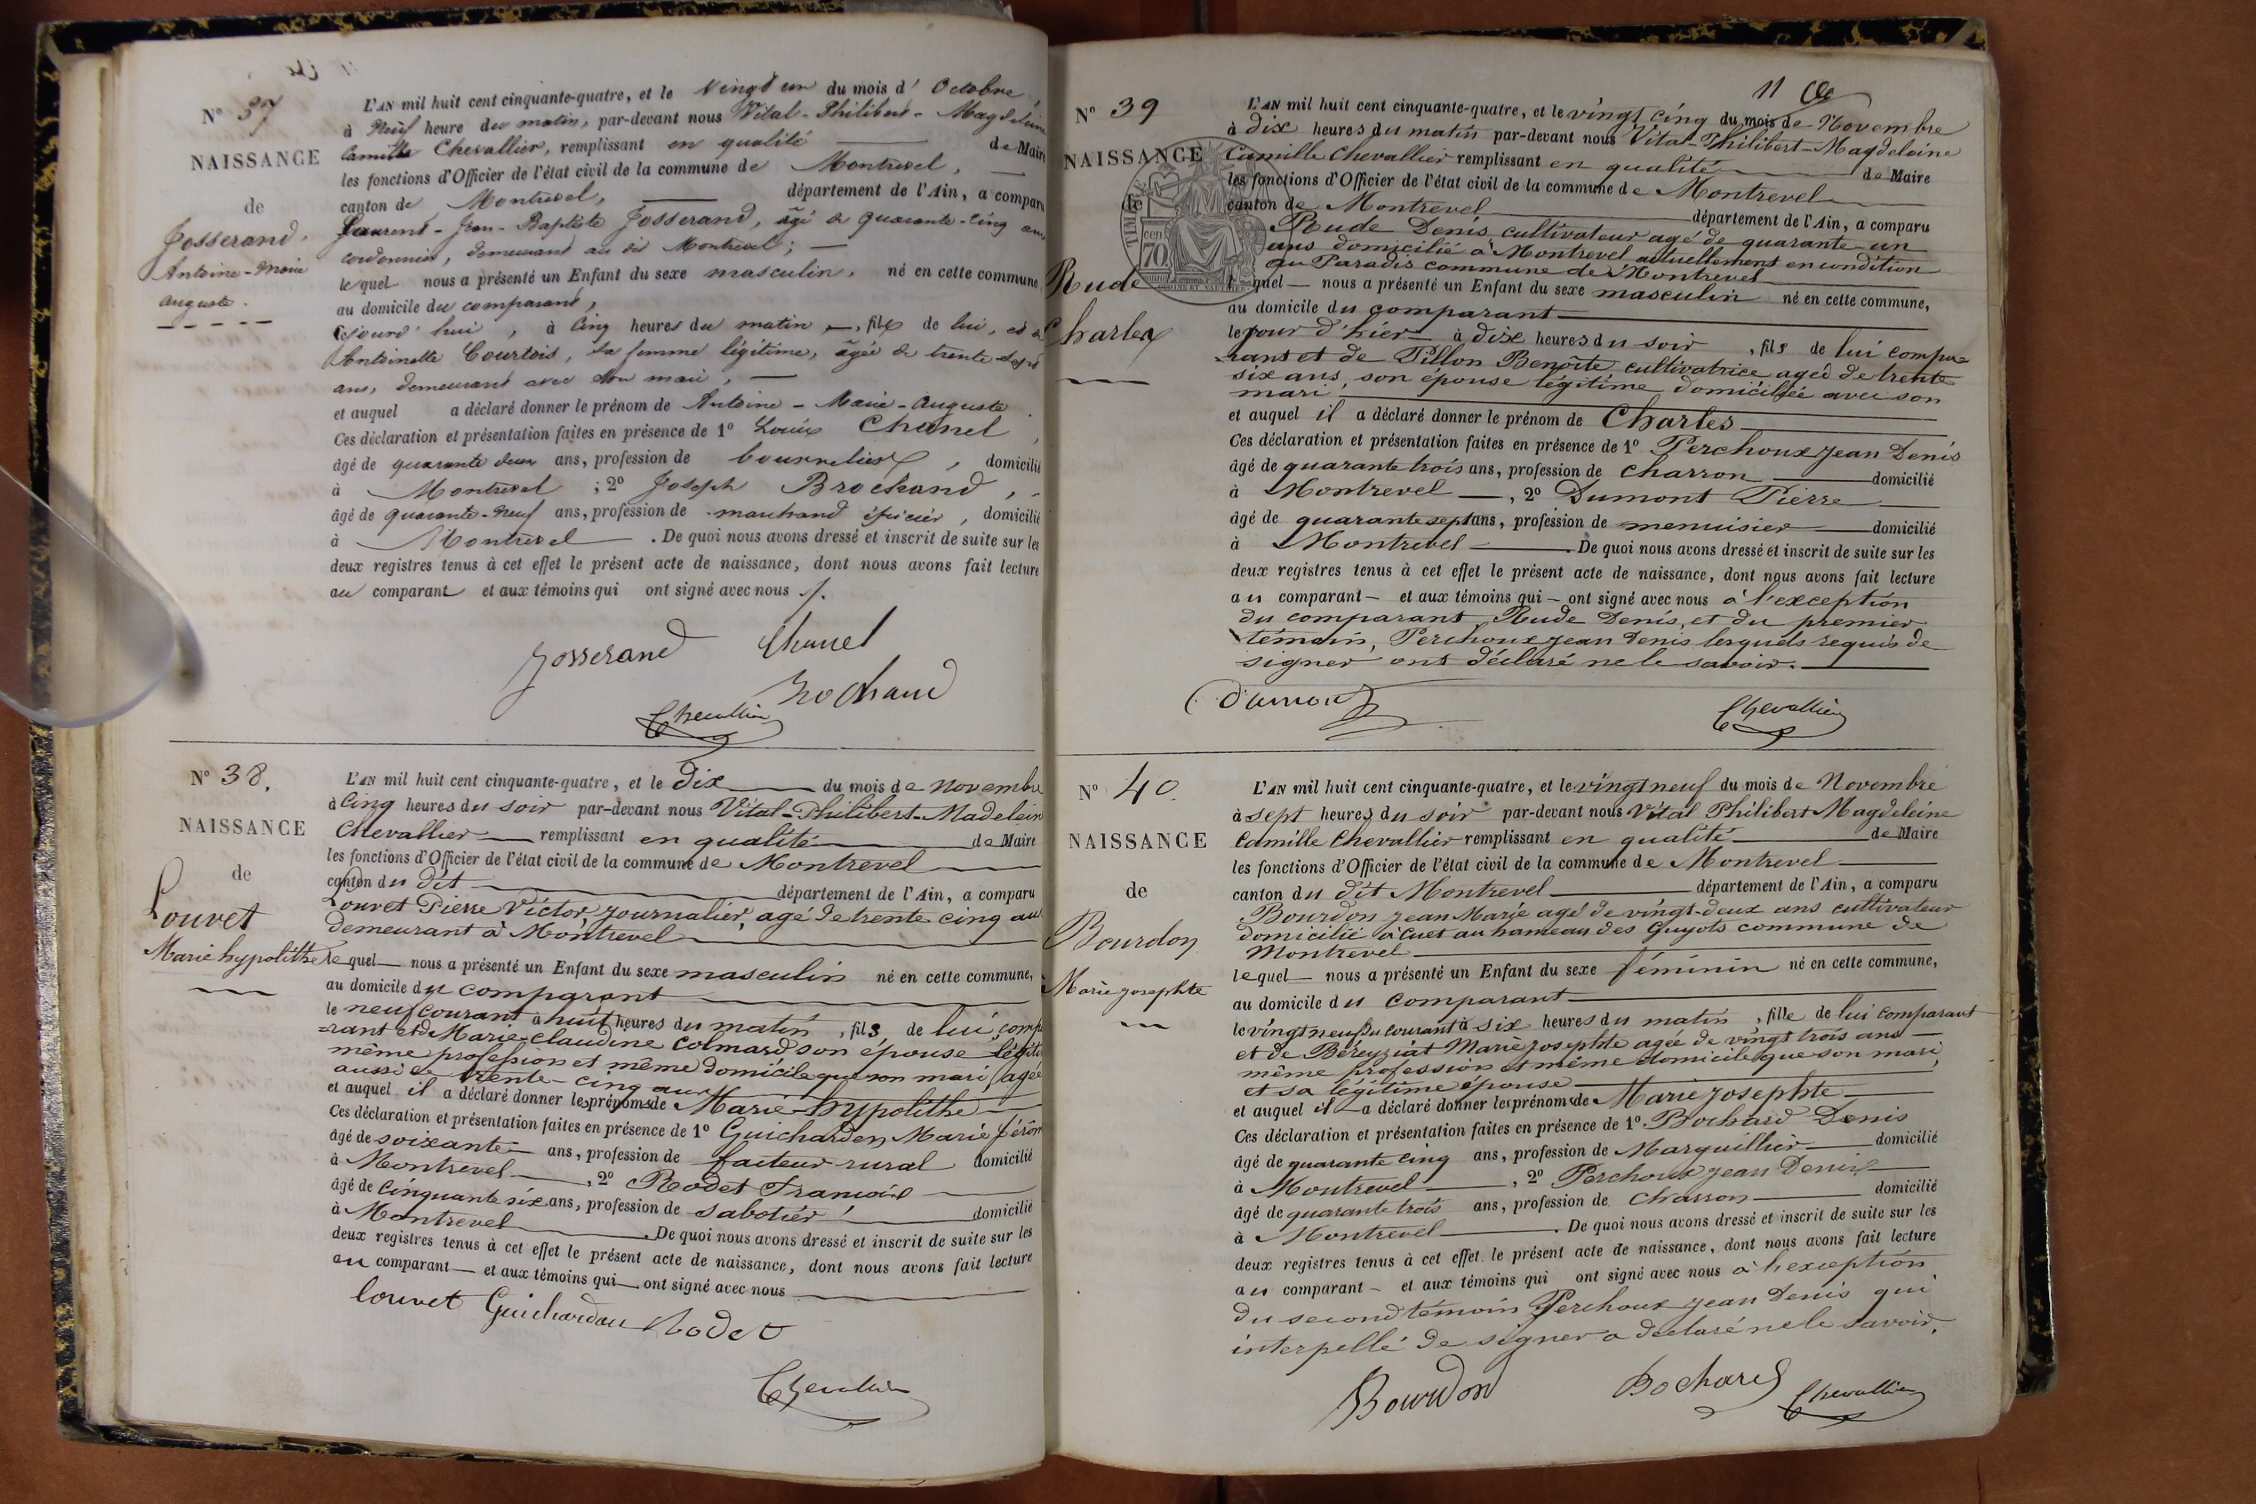 N° 37
NAISSANCE
de
Josserand,
Antoine-Marie
auguste.
L'AN mil huit cent cinquante-quatre, et le vingt un du mois d'Octobre,
à Neuf heure du matin, par-devant nous Vital-Philibert-Magdeleine
Camille Chevallier, remplissant en qualité de Maire
les fonctions d'Officier de l'état civil de la commune de Montrevel,
canton de Montrevel, département de l'Ain, a comparu
Laurent-Jean-Baptiste Josserand, âgé de quarante-cinq ans
cordonnier, demeurant au dit Montrevel;
lequel nous a présenté un Enfant du sexe masculin, né en cette commune
au domicile du comparant,
cejourd'hui, à Cinq heures du matin, fils de lui, et de
Antoinette Courtois, sa femme légitime, âgée de trente-sept
ans, demeurant avec son mari,
et auquel a déclaré donner le prénom de Antoine-Marie-Auguste.
Ces déclaration et présentation faites en présence de 1° Louis Chanel,
âgé de quarante deux ans, profession de bourrelier, domicilié
à Montrevel; 2° Joseph Brochand,
âgé de quarante-neuf ans, profession de marchand épicier, domicilié
à Montrevel. De quoi nous avons dressé et inscrit de suite sur les
deux registres tenus à cet effet le présent acte de naissance, dont nous avons fait lecture
au comparant et aux témoins qui ont signé avec nous.
Josserand Chanel
Brochand
Chevallier
N° 38.
NAISSANCE
de
Louvet
Marie hypolithe
L'AN mil huit cent cinquante-quatre, et le dix du mois de Novembre
à Cinq heures du soir par-devant nous Vital-Philibert-Madelein
Chevallier remplissant en qualité de Maire
les fonctions d'Officier de l'état civil de la commune de Montrevel
canton du dit département de l'Ain, a comparu
Louvet Pierre Victor, journalier, agé de trente cinq an
demeurant à Montrevel
lequel nous a présenté un Enfant du sexe masculin né en cette commune,
au domicile du comparant
le neuf courant à huit heures du matin, fils de lui comp
=rant et de Marie-Claudine Colmard son épouse légiti
même profession et même domicile que son mari, agée
aussi de trente-cinq ans
et auquel il a déclaré donner les prénoms de Marie-hypolithe
Ces déclaration et présentation faites en présence de 1° Guicharden Marie Jérôm
âgé de soixante ans, profession de facteur rural domicilié
à Montrevel, 2° Rodet François
âgé de cinquante six ans, profession de sabotier domicilié
à Montrevel. De quoi nous avons dressé et inscrit de suite sur les
deux registres tenus à cet effet le présent acte de naissance, dont nous avons fait lecture
au comparant et aux témoins qui ont signé avec nous
Louvet Guichardan Rodet
Chevallier
11
N° 39
NAISSANCE
de
Rude
Charles
L'AN mil huit cent cinquante-quatre, et le vingt cinq du mois de Novembre
à dix heures du matin par-devant nous Vital-Philibert-Magdeleine
Camille Chevallier remplissant en qualité de Maire
les fonctions d'Officier de l'état civil de la commune de Montrevel
canton de Montrevel département de l'Ain, a comparu
Rude Denis cultivateur agé de quarante-un
ans domicilié à Montrevel actuellement en condition
au Paradis commune de Montrevel
lequel nous a présenté un Enfant du sexe masculin né en cette commune,
au domicile du comparant
le jour d'hier à dix heures du soir, fils de lui compa=
=rant et de Pillon Benoîte cultivatrice agée de trente
six ans, son épouse légitime domiciliée avec son
mari
et auquel il a déclaré donner le prénom de Charles
Ces déclaration et présentation faites en présence de 1° Perchoux Jean Denis
âgé de quarante trois ans, profession de charron domicilié
à Montrevel, 2° Dumont Pierre
âgé de quarante sept ans, profession de menuisier domicilié
à Montrevel. De quoi nous avons dressé et inscrit de suite sur les
deux registres tenus à cet effet le présent acte de naissance, dont nous avons fait lecture
au comparant et aux témoins qui ont signé avec nous à l'exception
du comparant Rude Denis, et du premier
témoin, Perchoux Jean Denis lesquels requis de
signer ont déclaré ne le savoir.
Dumont
Chevallier
N° 40.
NAISSANCE
de
Bourdon
Marie josephte
L'AN mil huit cent cinquante-quatre, et le vingt neuf du mois de Novembre
à sept heures du soir par-devant nous Vital Philibert Magdeleine
Camille Chevallier remplissant en qualité de Maire
les fonctions d'Officier de l'état civil de la commune de Montrevel
canton du dit Montrevel département de l'Ain, a comparu
Bourdon Jean Marie agé de vingt-deux ans cultivateur
domicilié à Cuet au hameau des Guyots commune de
Montrevel
lequel nous a présenté un Enfant du sexe féminin né en cette commune,
au domicile du comparant
le vingt neuf du courant à six heures du matin, fille de lui comparant
et de Béreyziat Marie josephte agée de vingt trois ans
même profession et même domicile que son mari,
et sa légitime épouse
et auquel il a déclaré donner les prénoms de Marie josephte
Ces déclaration et présentation faites en présence de 1° Bochard Denis
âgé de quarante cinq ans, profession de Marguillier domicilié
à Montrevel, 2° Perchoux Jean Denis
âgé de quarante trois ans, profession de charron domicilié
à Montrevel. De quoi nous avons dressé et inscrit de suite sur les
deux registres tenus à cet effet le présent acte de naissance, dont nous avons fait lecture
au comparant et aux témoins qui ont signé avec nous à l'exception
du second témoin Perchoux Jean Denis qui
interpellé de signer a déclaré ne le savoir.
Bourdon Bochard Chevallier